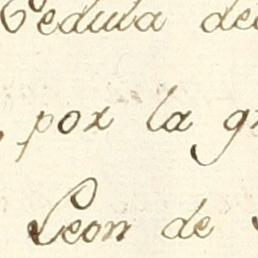 Cedula de
por la g
Leon de